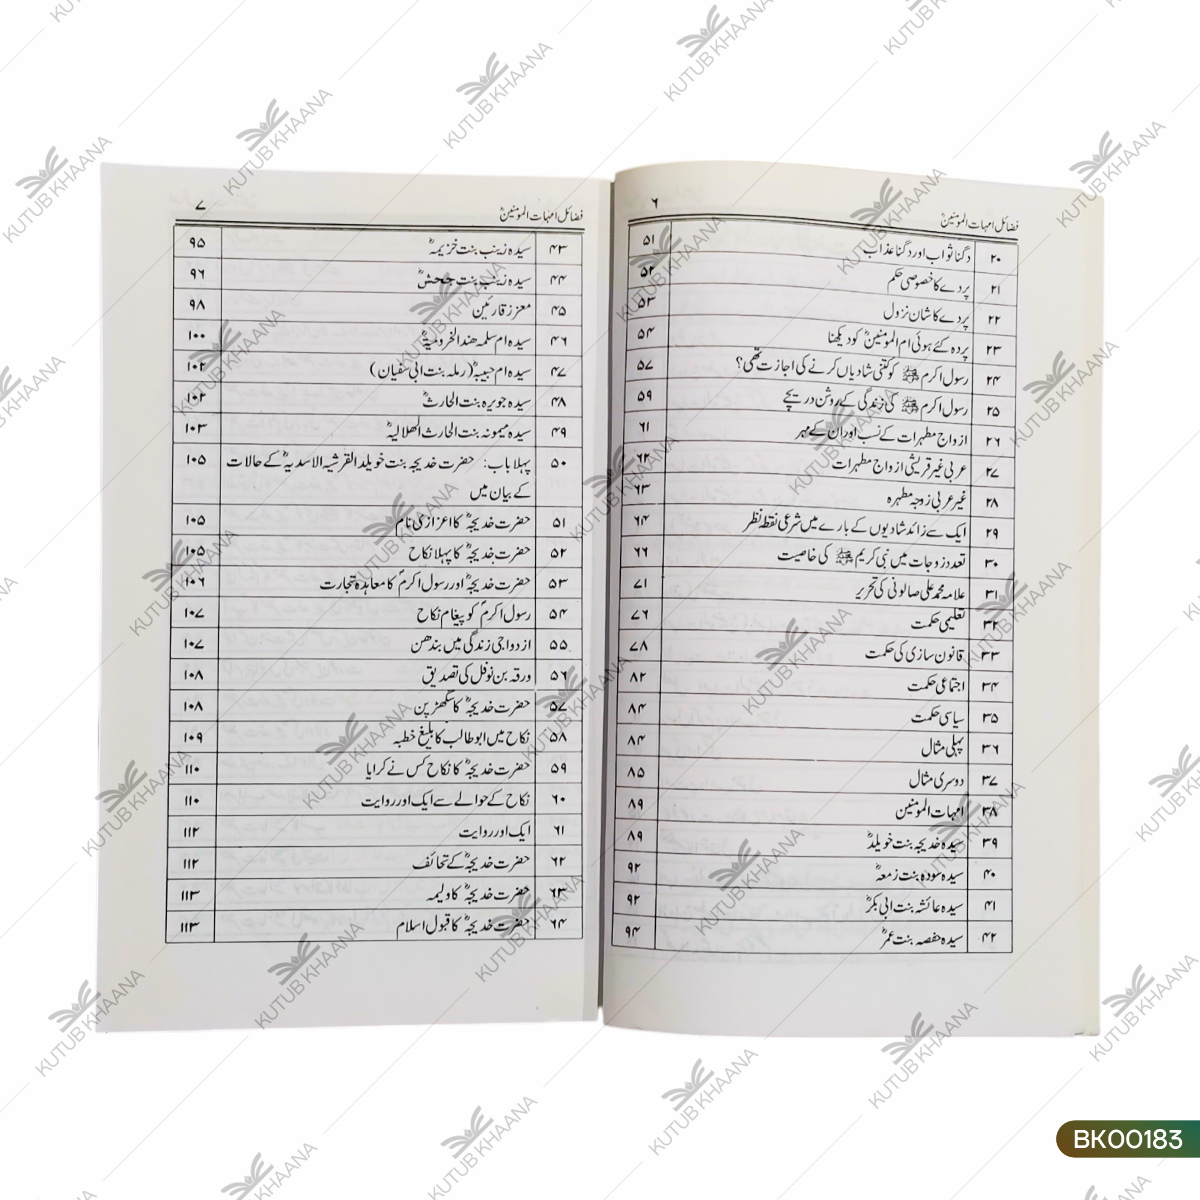 ۶
فضائل امہات المومنینؓ
۲۰ دگنا ثواب اور دگنا عذاب ۵۱
۲۱ پردے کا خصوصی حکم ۵۲
۲۲ پردے کا شان نزول ۵۳
۲۳ پردہ کئے ہوئی ام المومنینؓ کو دیکھنا ۵۴
۲۴ رسول اکرم ﷺ کو کتنی شادیاں کرنے کی اجازت تھی؟ ۵۷
۲۵ رسول اکرم ﷺ کی زندگی کے روشن دریچے ۵۹
۲۶ ازواج مطہرات کے نسب اور ان کے مہر ۶۱
۲۷ عربی غیر قریشی ازواج مطہرات ۶۲
۲۸ غیر عربی زوجہ مطہرہ ۶۳
۲۹ ایک سے زائد شادیوں کے بارے میں شرعی نقطہ نظر ۶۴
۳۰ تعدد زوجات میں نبی کریم ﷺ کی خاصیت ۶۶
۳۱ علامہ محمد علی صالونی کی تحریر ۷۱
۳۲ تعلیمی حکمت ۷۶
۳۳ قانون سازی کی حکمت ۷۸
۳۴ اجتماعی حکمت ۸۲
۳۵ سیاسی حکمت ۸۴
۳۶ پہلی مثال ۸۴
۳۷ دوسری مثال ۸۵
۳۸ امہات المومنین ۸۹
۳۹ سیدہ خدیجہ بنت خویلدؓ ۸۹
۴۰ سیدہ سودہ بنت زمعہؓ ۹۲
۴۱ سیدہ عائشہ بنت ابی بکرؓ ۹۲
۴۲ سیدہ حفصہ بنت عمرؓ ۹۴
۷
فضائل امہات المومنینؓ
۴۳ سیدہ زینب بنت خزیمہؓ ۹۵
۴۴ سیدہ زینب بنت جحشؓ ۹۶
۴۵ معزز قارئین ۹۸
۴۶ سیدہ ام سلمہ ھند الخرومیہؓ ۱۰۰
۴۷ سیدہ ام حبیبہؓ (رملہ بنت ابی سفیان) ۱۰۲
۴۸ سیدہ جویرہ بنت الحارثؓ ۱۰۲
۴۹ سیدہ میمونہ بنت الحارث الھلالیہؓ ۱۰۳
۵۰ پہلا باب: حضرت خدیجہ بنت خویلد القرشیہ الاسدیہؓ کے حالات ۱۰۵
کے بیان میں
۵۱ حضرت خدیجہؓ کا اعزازی نام ۱۰۵
۵۲ حضرت خدیجہؓ کا پہلا نکاح ۱۰۵
۵۳ حضرت خدیجہؓ اور رسول اکرمؐ کا معاہدہ تجارت ۱۰۶
۵۴ رسول اکرمؐ کو پیغام نکاح ۱۰۷
۵۵ ازدواجی زندگی میں بندھن ۱۰۷
۵۶ ورقہ بن نوفل کی تصدیق ۱۰۸
۵۷ حضرت خدیجہؓ کا سگھڑپن ۱۰۸
۵۸ نکاح میں ابوطالب کا بلیغ خطبہ ۱۰۹
۵۹ حضرت خدیجہؓ کا نکاح کس نے کرایا ۱۱۰
۶۰ نکاح کے حوالے سے ایک اور روایت ۱۱۰
۶۱ ایک اور روایت ۱۱۲
۶۲ حضرت خدیجہؓ کے تحائف ۱۱۲
۶۳ حضرت خدیجہؓ کا ولیمہ ۱۱۳
۶۴ حضرت خدیجہؓ کا قبول اسلام ۱۱۳
KUTUB KHAANA
BK00183